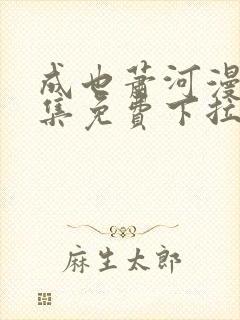 成也萧河漫
集免費下拉
麻生太郎